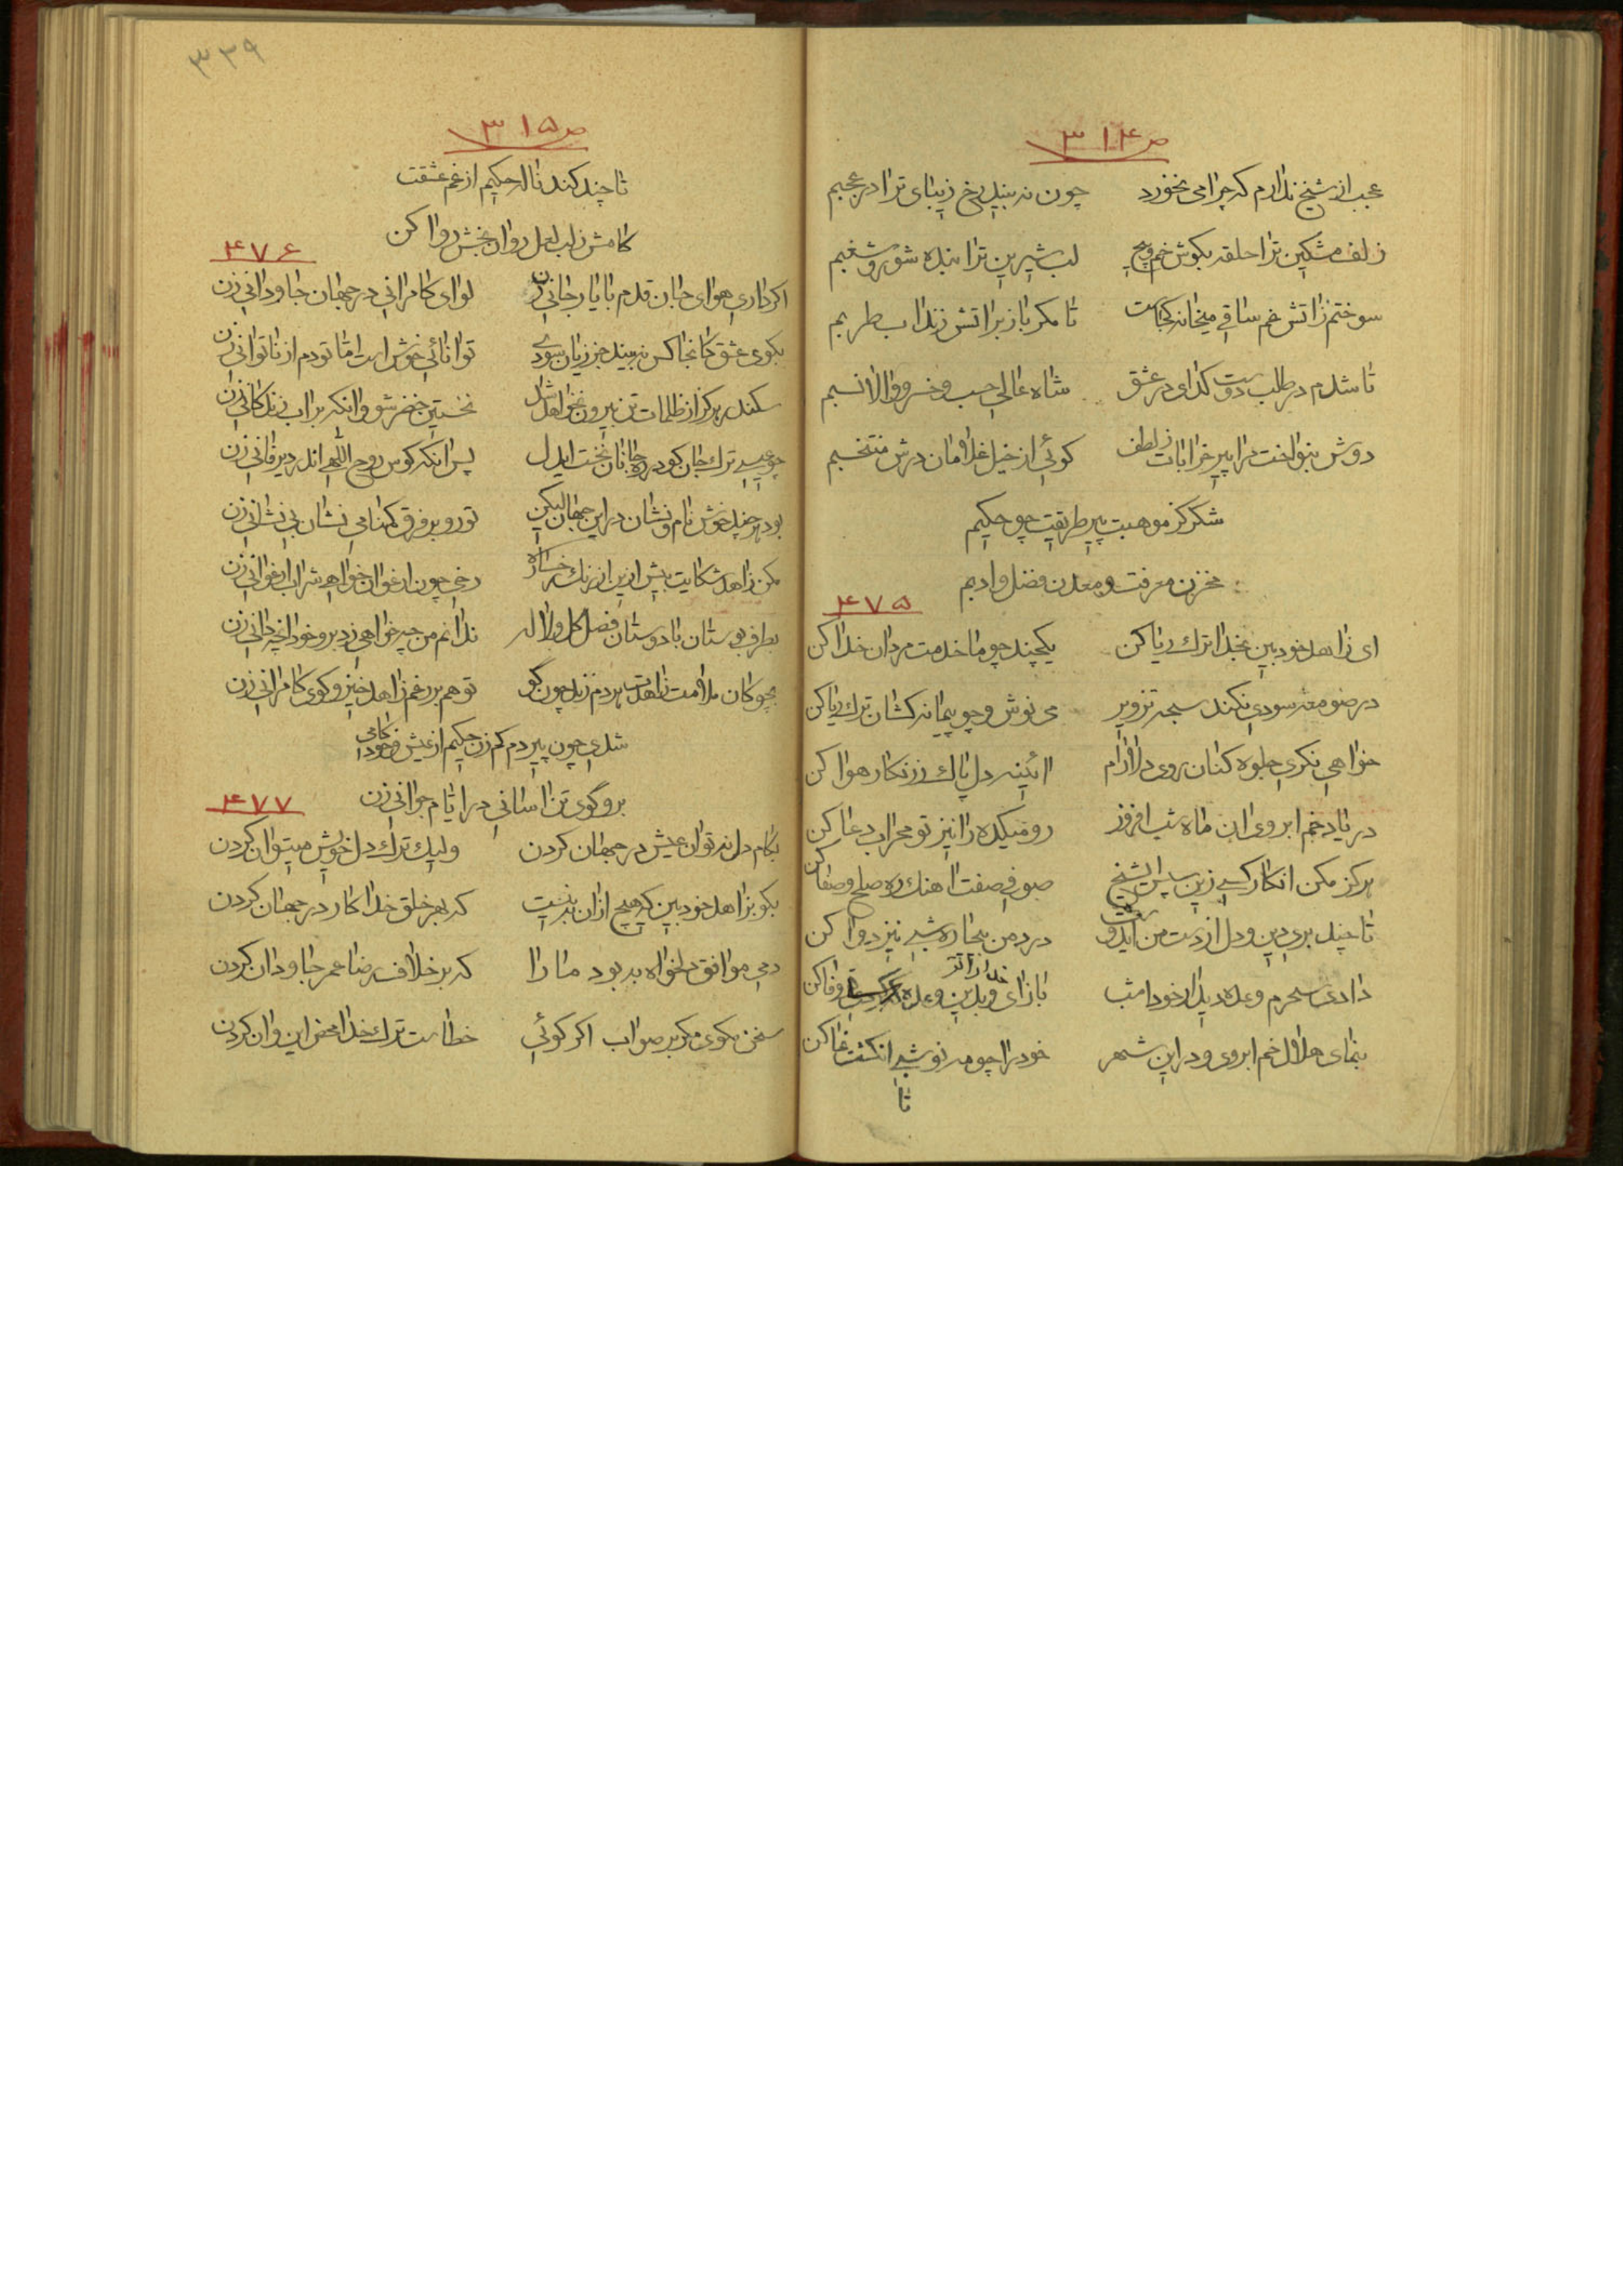 ص ۳۱۴
عجب از شیخ ندارم که چرا می نخورد چون نه بیند رخ زیبای ترا در عجبم
زلف مشکین ترا حلقه بکوش خم و پیچ لب شیرین ترا بنده شور و شغبم
سوختم زاتش غم ساقی میخانه کجاست تا مکر باز براتش زند اب طربم
تا شدم در طلب دوست کدای در عشق شاه عالی حسب و خسرو والا نسبم
دوش بنواخت مرا پیر خرابات ز لطف کوئی از خیل غلامان درش منتخبم
شکر کز موهبت پیر طریقت چو حکیم
مخزن معرفت و معدن فضل و ادبم
۴۷۵
ای زاهد خود بین بخدا ترک ریا کن یکچند چو ما خدمت مردان خدا کن
در صومعه سودی نکند سبحه تزویر می نوش و چو پیمانه کشان ترک ریا کن
خواهی نکری جلوه کنان روی دلارام ائینه دل پاک ز زنکار هوا کن
در یاد خم ابروی ان ماه شب افروز رو میکده را نیز تو محراب دعا کن
هرکز مکن انکار کسی زین سپس ای شیخ صوفی صفت اهنک ره صلح و صفا کن
تا چند بری دین و دل از دست من ایدوست درد من بیچاره شبی نیز دوا کن
دادی سحرم وعده دیدار خود امشب باز ای و بدین وعده خدا را تو وفا کن
بنمای هلال خم ابروی و در این شهر خود را چو مه نو شبی انکشت نما کن
تا
۳۳۹
ص ۳۱۵
تا چند کند ناله حکیم از غم عشقت
کامش ز لب لعل روان بخش روا کن
۴۷۶
اکر داری هوای جان قدم با یار جانی زن لوای کامرانی در جهان جاودانی زن
بکوی عشق کانجا کس نه بیند جز زیان سودی توانائی خوش است اما تو دم از ناتوانی زن
سکندر هرکز از ظلمات تن بیرون نخواهد شد نخستین خضر شو وانکه براب زندکانی زن
چو عیسی ترک جان کو در ره جانان نخست ایدل پس انکه کوس روح اللهی اندر دیر فانی زن
بود هرچند خوش نام و نشان در این جهان لیکن تو رو بر فرق کمنامی نشان بی نشانی زن
مکن زاهد شکایت بیش ازین از رنک رخساره رخی چون ارغوان خواهی شراب ارغوانی زن
بطرف بوستان با دوستان فصل کل و لاله ندانم من چه خواهی زد برو خود انچه دانی زن
بچوکان ملامت زاهدت هر دم زند چون کو تو هم بر رغم زاهد خیز و کوی کامرانی زن
شدی چون پیر دم کم زن حکیم از عیش و خودکامی
برو گوی تن اسانی در ایام جوانی زن
۴۷۷
بکام دل نه توان عیش در جهان کردن ولیک ترک دل خویش میتوان کردن
بکو بزاهد خود بین که هیچ از ان بدتر نیست که بهر خلق خدا کار در جهان کردن
دمی موافق دلخواه به بود ما را که بر خلاف رضا عمر جاودان کردن
سخن مکوی مکر بر صواب اکر کوئی خطاست ترک خدا محض این و ان کردن